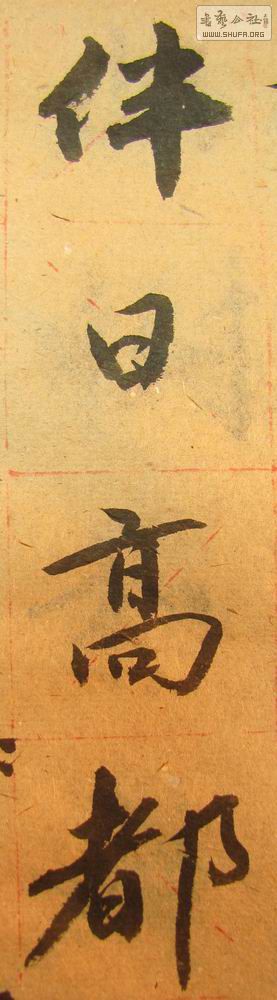 書艺公社
WWW.SHUFA.ORG
伴日高都